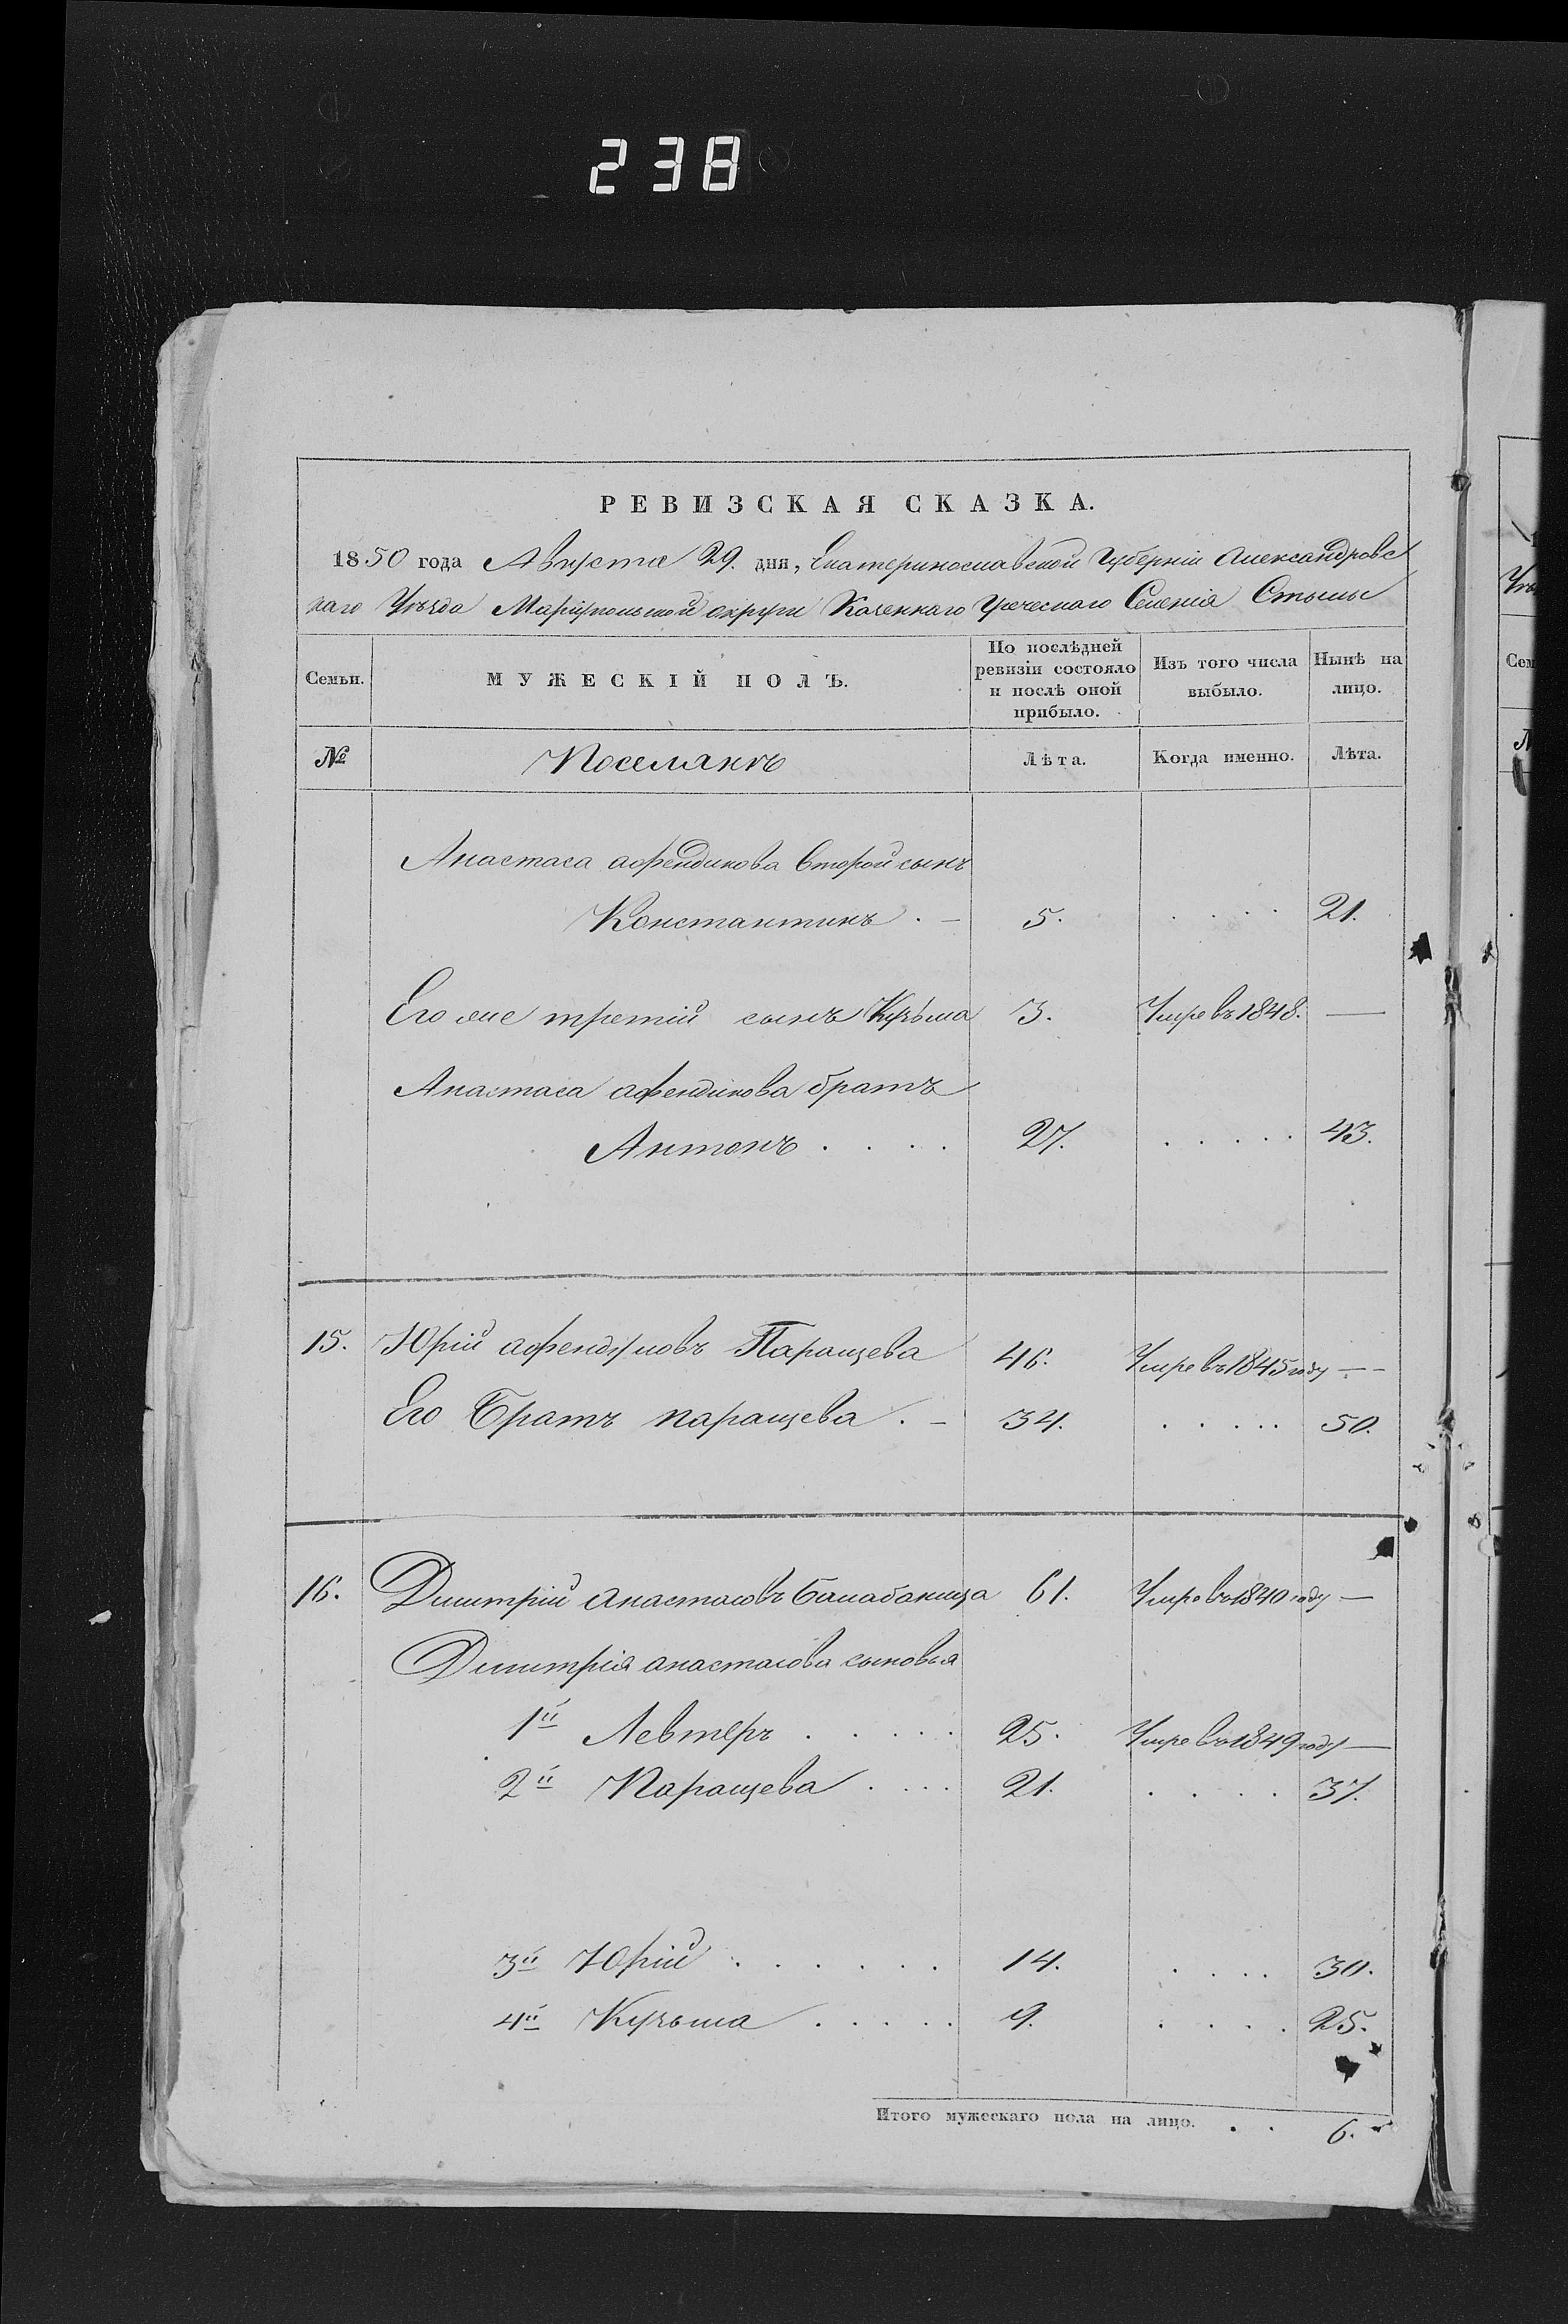 238
РЕВИЗСКАЯ СКАЗКА.
1850 года Августа 29. дня, Екатеринославской Губерніи Александровс
каго Уѣзда Маріупольской округи Казеннаго Греческаго Селенія Стылы
Семьи. МУЖЕСКІЙ ПОЛЪ. По послѣдней ревизіи состояло и послѣ оной прибыло. Изъ того числа выбыло. Нынѣ на лицо.
№ Поселянъ Лѣта. Когда именно. Лѣта.
Анастаса афендикова второй сынъ
Константинъ . – 5. . . . . 21.
Его же третій сынъ Кузьма 3. Умре въ 1848. —
Анастаса афендикова братъ
Антонъ . . . . 27. . . . . . 43.
15. Юрій афендуловъ Паращева 46. Умре въ 1845 году —
Его Братъ паращева . – 34. . . . . . 50.
16. Дмитрій анастасовъ балабаница 61. Умре въ 1840 году —
Дмитрія анастасова сыновья
1й Левтеръ . . . . . 25. Умре въ 1849 году —
2й Паращева . . . . 21. . . . . 37.
3й Юрій . . . . . . 14. . . . . 30.
4й Кузьма . . . . . 9. . . . . 25.
Итого мужескаго пола на лицо. . . 6.
Уѣ
Сем